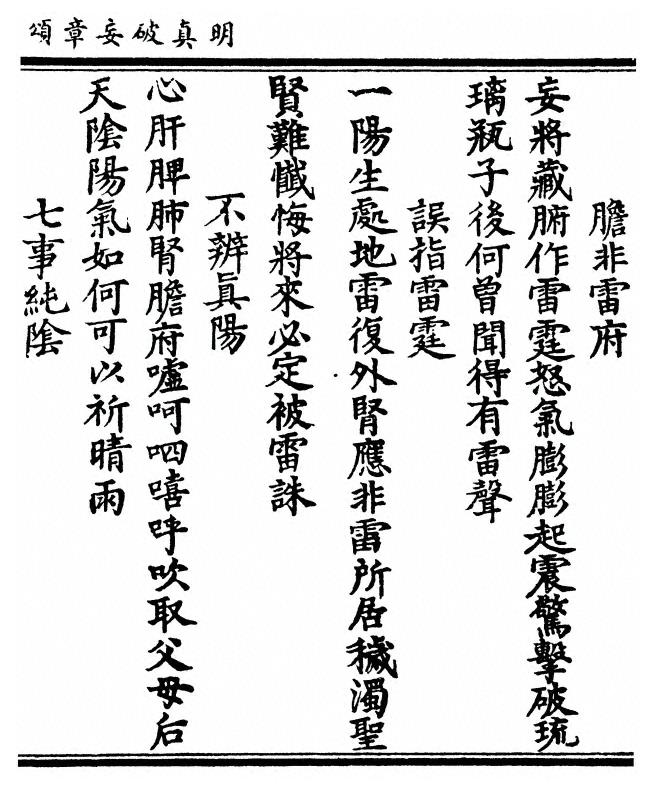 明真破妄章頌
膽非雷府
妄將藏腑作雷霆怒氣膨膨起震驚擊破琉
璃瓶子後何曾聞得有雷聲
誤指雷霆
一陽生處地雷復外腎應非雷所居穢濁聖
賢難懺悔將來必定被雷誅
不辨眞陽
心肝脾肺腎膽府噓呵呬嘻呼吹取父母后
天陰陽氣如何可以祈晴雨
七事純陰